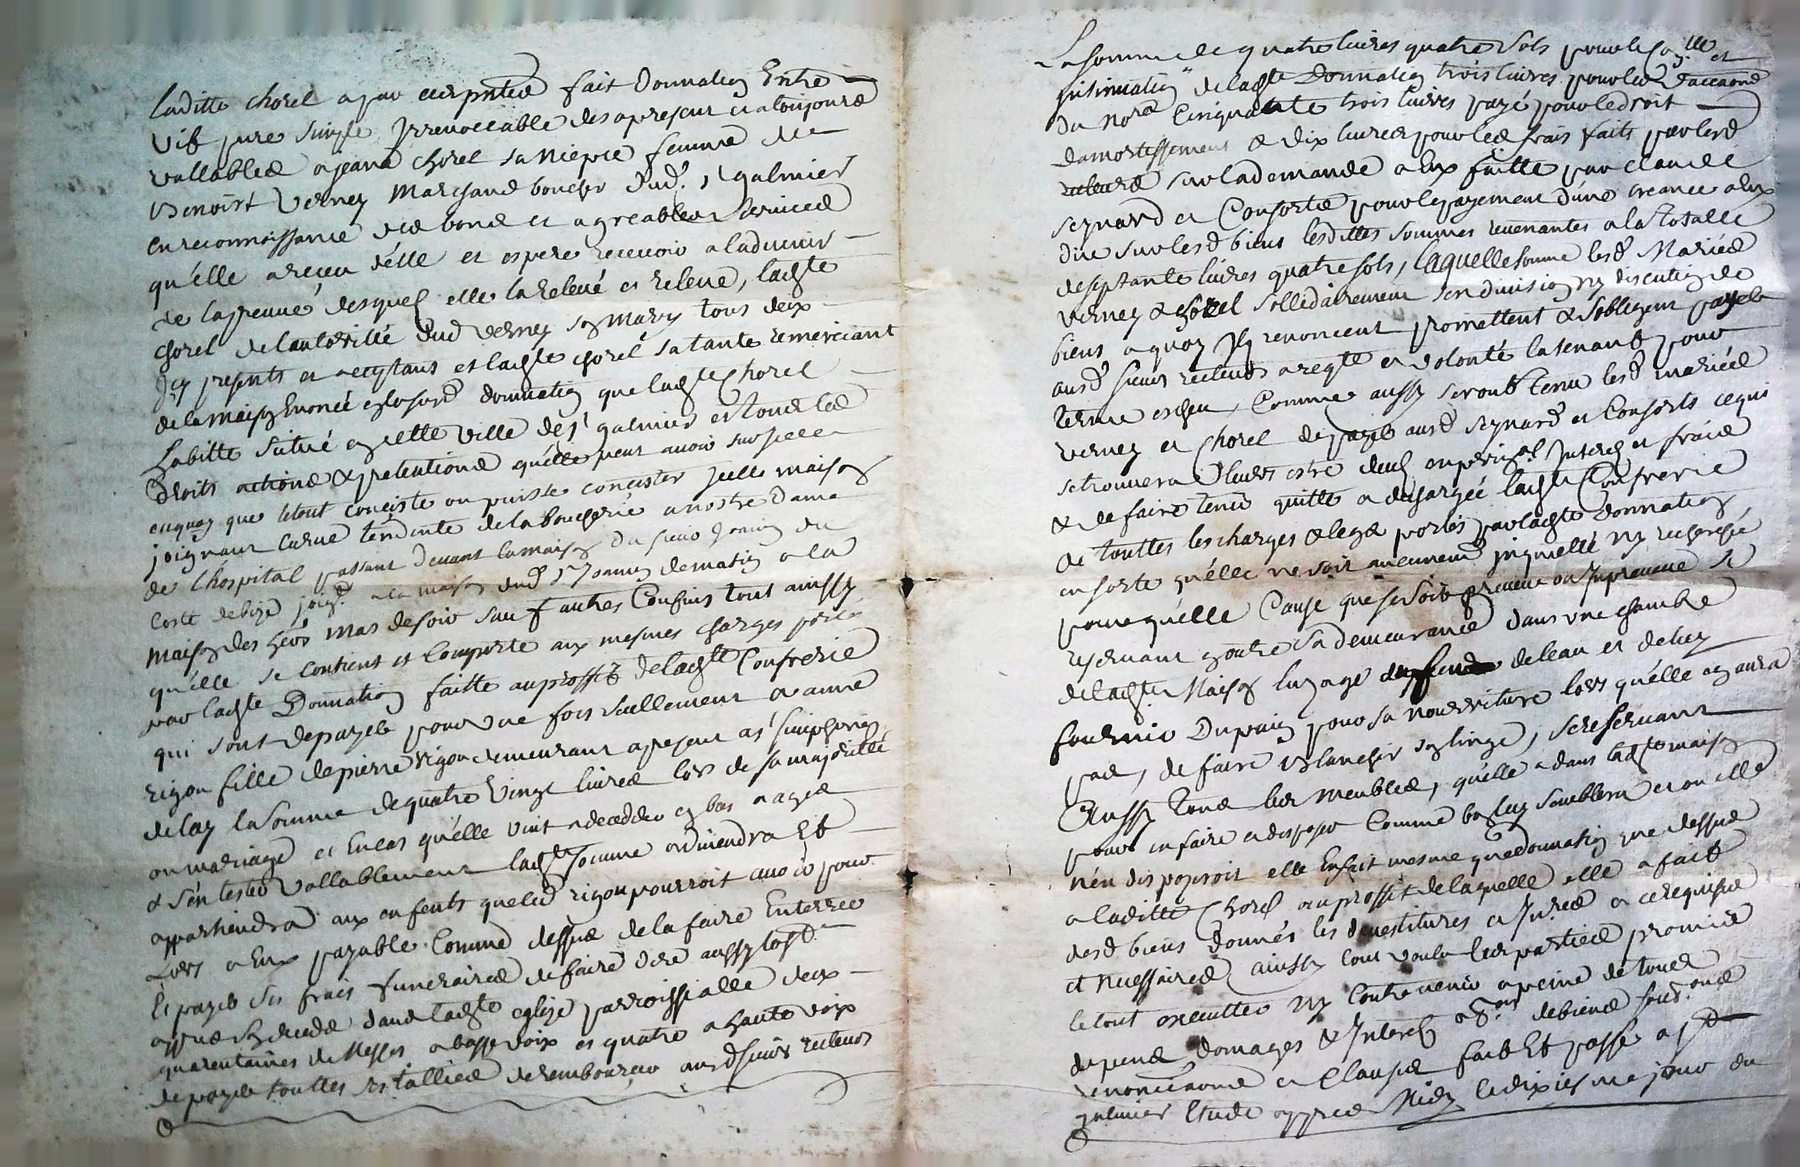 laditte chorel a par ces pntes fait Donnation Entre
vifs pure simple Irrevoccable des apresent et a toujours
vallables a jeane chorel sa niepce femme de
Benoist Verney Marchand boucher dud. st galmier
en reconnoissance des bons et agreables services
qu'elle a receu d'elle et espere recevoir a ladvenir
de la preuve desquels elle la relevé et releve, ladte
chorel de lauthorittée dud verney son mary tous deux
Icy presents et acceptans et ladte chorel sa tante remerciant
de la maison Enoncée en la susd donnation que ladte Chorel
habitte scitué en cette ville de st galmier et tous les
Droits actions & pretentions qu'elle peut avoir sur icelle
enquoy que le tout conciste ou puisse concister icelle maison
joignant la rue tendante de la boucherie a nostre Dame
de l'hospital passant devant la maison du sieur Jamin du
Costé de bize joigt a la maison dud sr Jamin de matin a la
maison des hers mas de soir sauf autres Confins tout ainssy
qu'elle se contient et Comporte aux mesmes charges portés
par ladte Donnation faitte au proffit de ladte Confrerie
qui sont de payer pour une fois seullement a anne
rigon fille de pierre rigon demeurant apresent a st Simphorien
de lay la Somme de quatre Vingt livres lors de sa majorittée
ou mariage et En cas qu'elle vint a decedder en bas aage
& sen tester vallablement ladte Somme adviendra Et
appartiendra aux enfents que led rigon pourroit avoir pour
Lors a Eux payable Comme dessus de la faire Enterrer
Et payer ses frais funeraires de faire dire aussytost
appres son deceds dans ladte eglize parroissialle deux
quarentaines de Messes a basse voix et quatre a haute voix
de payer touttes les tallies de rembourcer ausd sieurs recteurs
La Somme de quatre livres quatre Sols pour le et
insinuation de ladte Donnation trois livres pour led d'accord
du Nore Cinquante trois livres payé pour le droit
damortissement & dix livres pour les frais faits par lesd
recteurs sur la demande a Eux faitte par claude
seynard et Consorts pour le payement d'une creance a Eux
due sur lesd biens lesdittes sommes revenantes a la totalle
de septante livres quatre sols, laquelle somme lesd Mariés
Verney & chorel sollidairement sen division ny discution de
biens a quoy Ils renoncent promettent & s'oblegent payer
ausd sieurs recteurs a reqte et volonté la tenant pour
terme escheu, Comme aussy seront tenu lesd mariés
verney et Chorel de payer ausd seynard et Consorts ce qui
se trouvera leurs estre deub en principal Interets et frais
& de faire tenir quitte et deschargée ladte Confrerie
de touttes les charges & legs portés par ladte donnation
en sorte qu'elle ne soit aucunement inquiettée ny recherchée
pour quelle Cause que se soit preveue ou Inpreveue se
reservant en outre sa demeurance dans une chambre
de ladte Maison luzage de leau et de luy
fournir Du pain pour sa nourriture lors qu'elle en aura
pas, de faire blanchir son linge, se reservant
Aussy tous les meubles, qu'elle a dans ladte maison
pour en faire et disposer Comme bon luy semblera et ou elle
n'en disposeroit elle En fait mesme que donnation que dessus
a laditte Chorel au proffit de laquelle elle a fait
desd biens donnés les devestitures et Inves a ce requises
et necessaires ainssy l'ont voulu les parties promis
le tout executter ny Contrevenir a peine de tous
depends domages & Interets obon de biens soub.ons
renonc.ons et Clauses fait Et passé a st
galmier Etude appres Midy le dixieme jour du